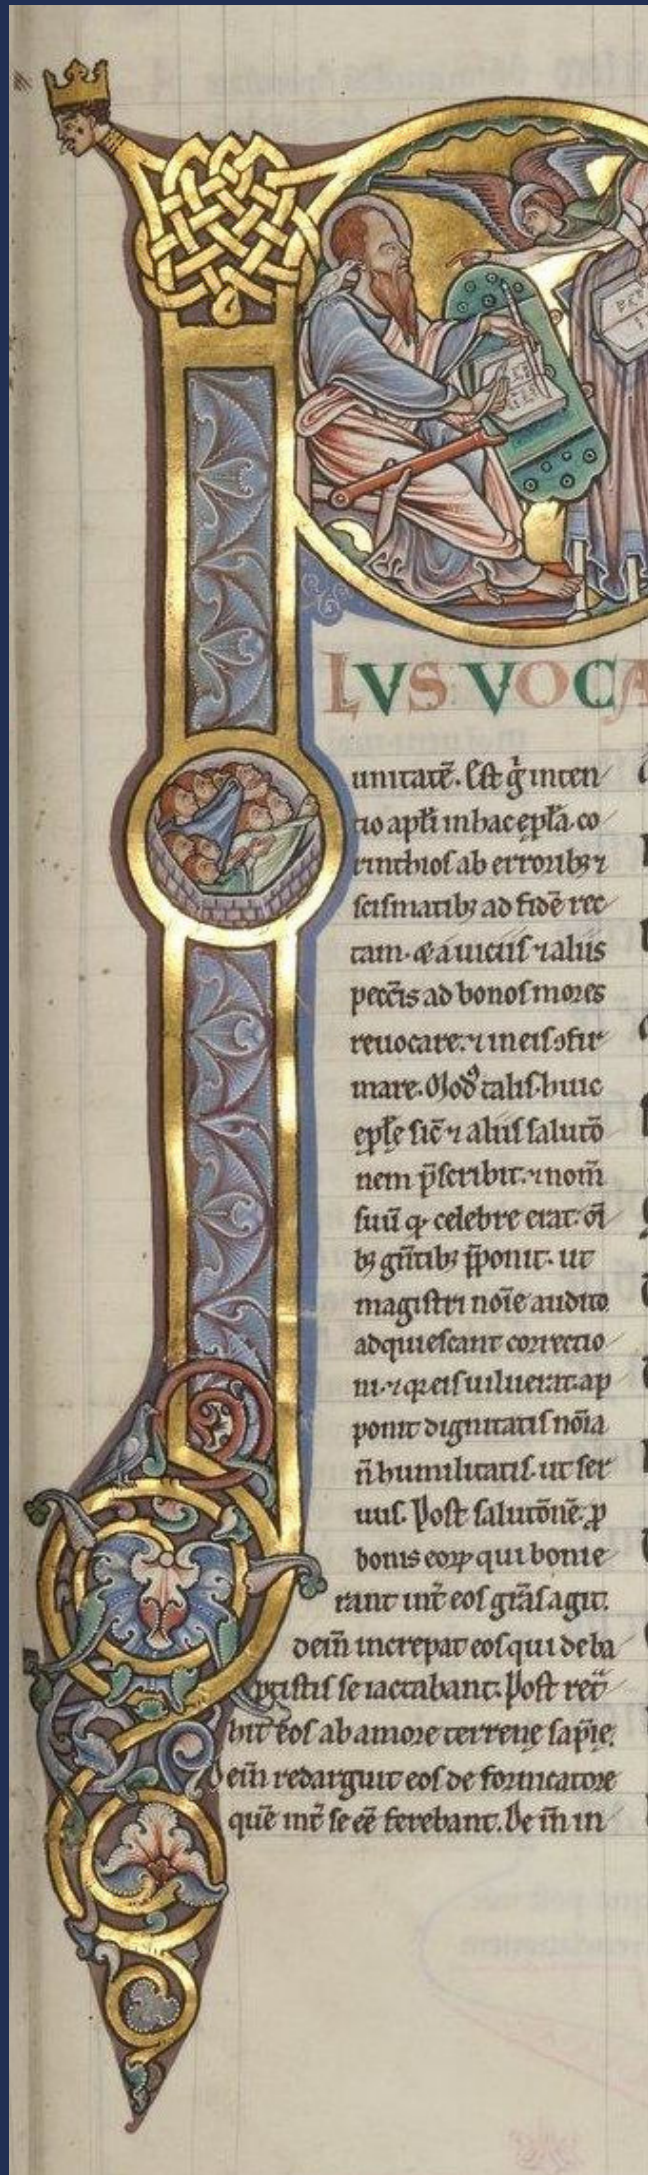 LVS VOCA
unitatē. Est ḡ inten
tio apłi in hac epła. co
rinthios ab erroribꝫ ⁊
scismatibꝫ ad fidē rec
tam. & a uiciis ⁊ aliis
peccīs ad bonos mores
reuocare. ⁊ in eis ɔfir
mare. Modꝰ talis. huic
epłe sic̄ ⁊ aliis salutō
nem p̄scribit. ⁊ nom̄
suū qꝛ celebre erat. oī
bꝫ gn̄tibꝫ p̄ponit. ut
magistri noīe audito
adquiescant correctio
ni. ⁊ eis uiluerat. ap
ponit dignitatis nōia
n̄ humilitatis. ut ser
uus. Post salutōnē. ꝓ
bonis eoꝝ qui bonie
rant int̄ eos grās agit.
dein̄ increpat eos qui de ba
ptistis se iactabant. Post ret̄
hit eos ab amore terrenę sapīę.
Dein̄ redarguit eos de fornicatore
quē int̄ se eē ferebant. Dein̄ in